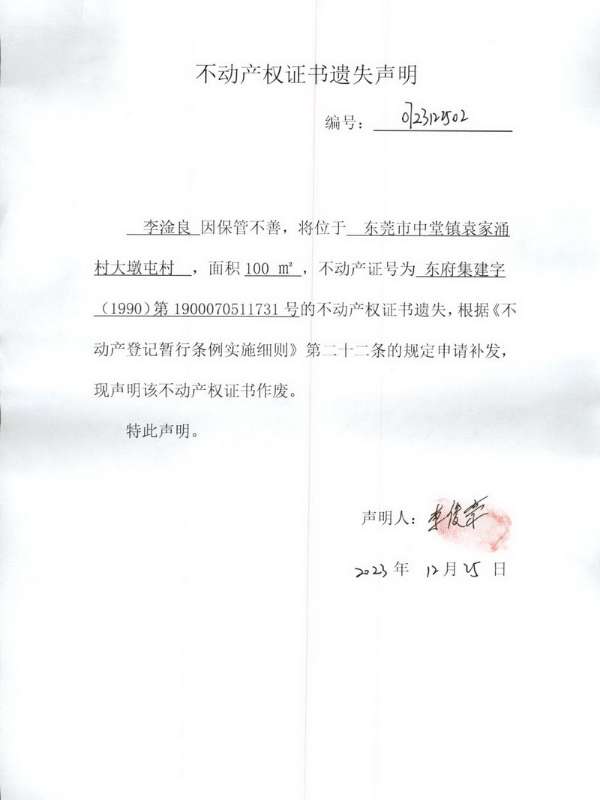 不动产权证书遗失声明
编号：0723122502
李淦良 因保管不善，将位于 东莞市中堂镇袁家涌
村大墩屯村 ，面积100 ㎡，不动产证号为 东府集建字
（1990）第 1900070511731 号的不动产权证书遗失，根据《不
动产登记暂行条例实施细则》第二十二条的规定申请补发，
现声明该不动产权证书作废。
特此声明。
声明人：李俊
2023 年 12 月 25 日